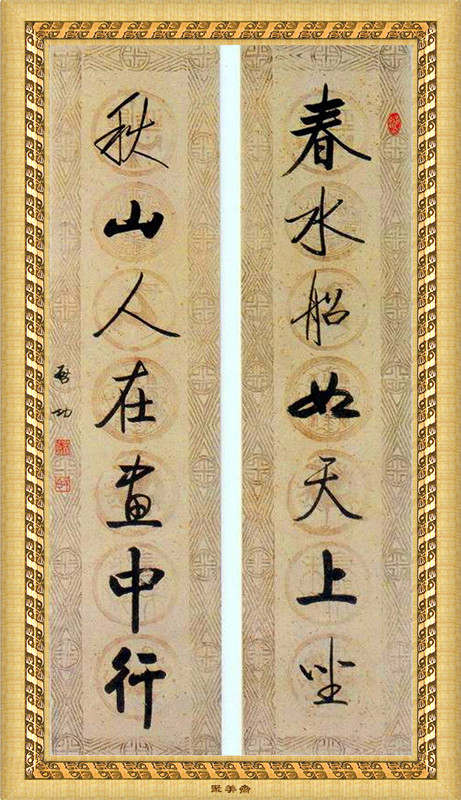 春水船如天上坐
秋山人在画中行
启功
聚美斋